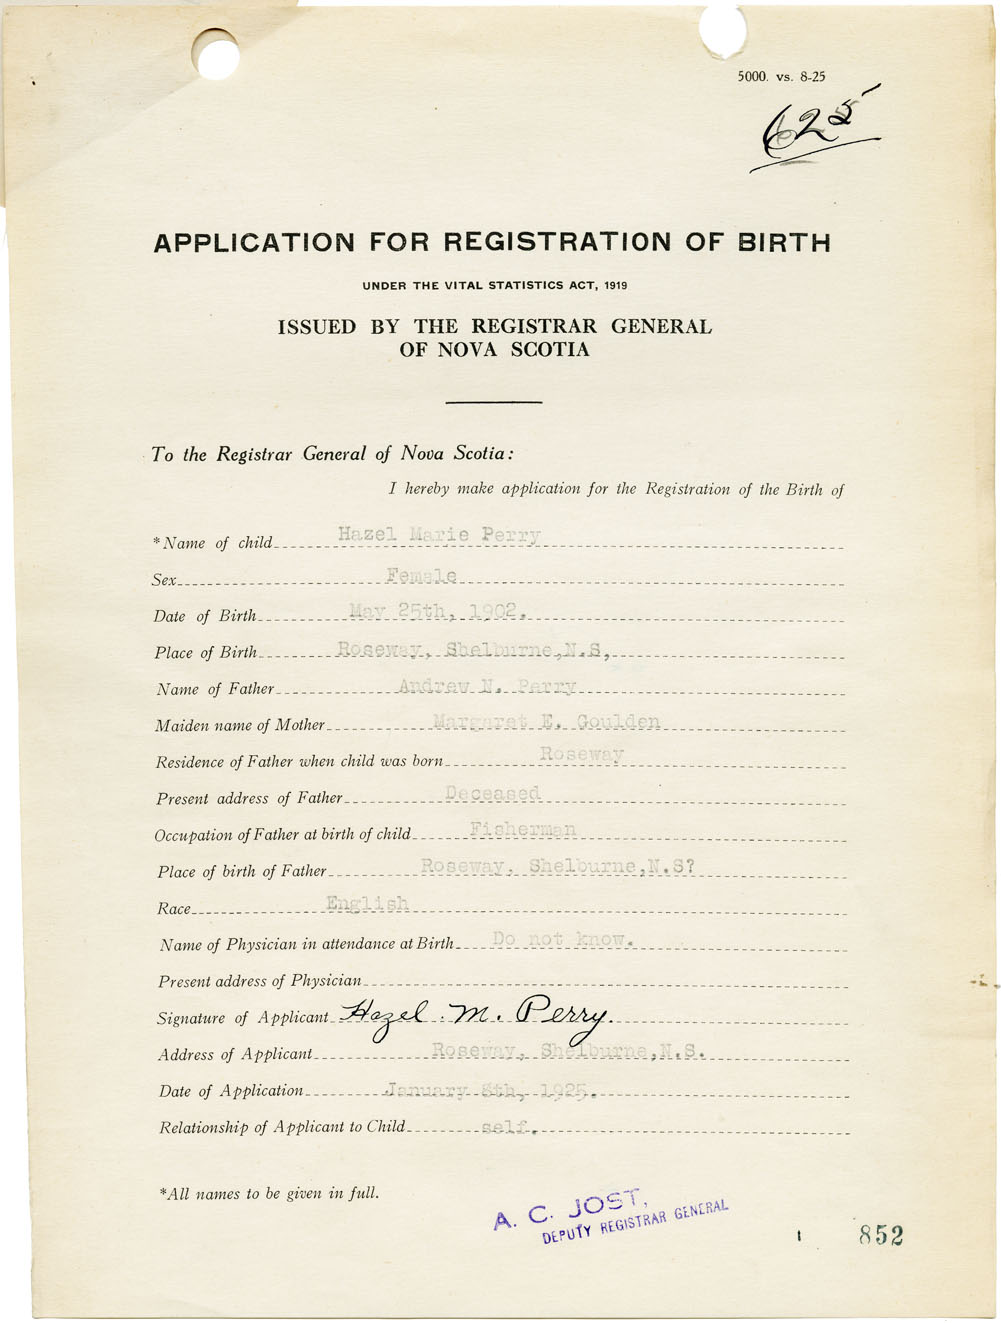 5000. vs. 8-25
625
APPLICATION FOR REGISTRATION OF BIRTH
UNDER THE VITAL STATISTICS ACT, 1919
ISSUED BY THE REGISTRAR GENERAL
OF NOVA SCOTIA
To the Registrar General of Nova Scotia:
I hereby make application for the Registration of the Birth of
*Name of child Hazel Marie Perry
Sex Female
Date of Birth May 25th, 1902.
Place of Birth Roseway, Shelburne,N.S,
Name of Father Andrew N. Perry
Maiden name of Mother Margaret E. Goulden
Residence of Father when child was born Roseway
Present address of Father Deceased
Occupation of Father at birth of child Fisherman
Place of birth of Father Roseway, Shelburne,N.S?
Race English
Name of Physician in attendance at Birth Do not know.
Present address of Physician
Signature of Applicant Hazel. M. Perry.
Address of Applicant Roseway, Shelburne,N.S.
Date of Application January 8th, 1925.
Relationship of Applicant to Child self.
*All names to be given in full.
A. C. JOST,
DEPUTY REGISTRAR GENERAL
852